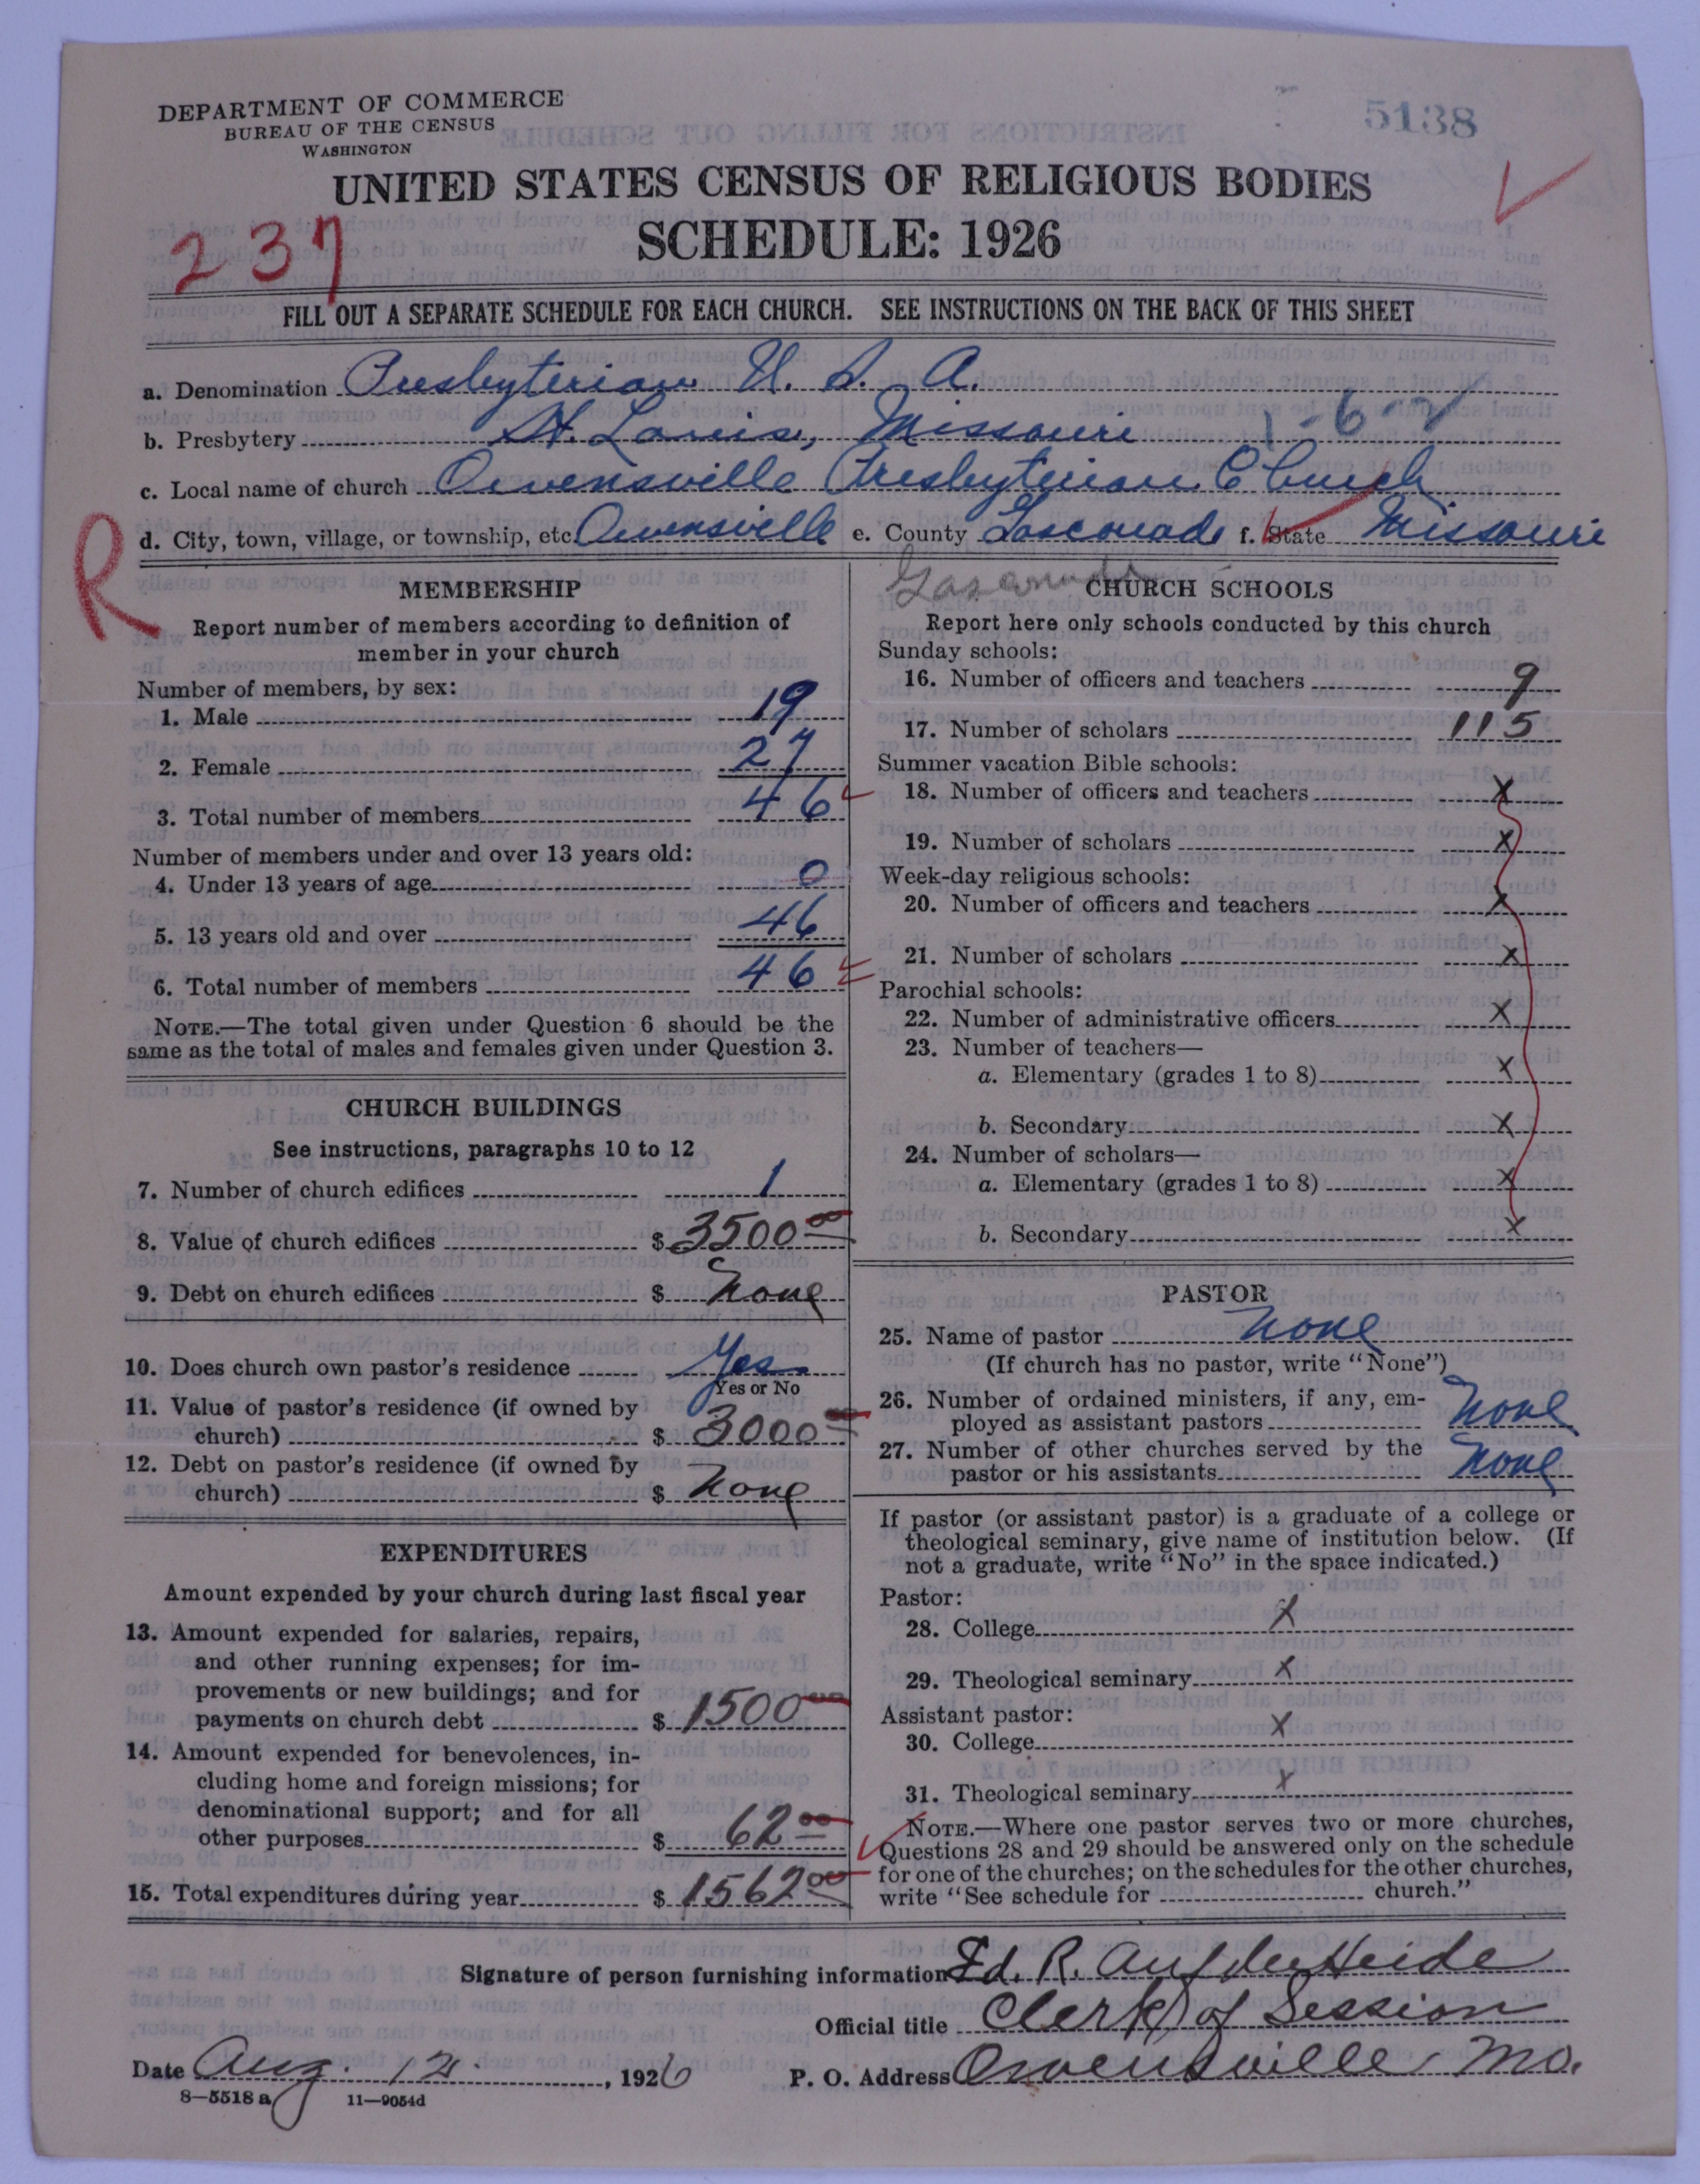 DEPARTMENT OF COMMERCE
BUREAU OF THE CENSUS
WASHINGTON
5138
UNITED STATES CENSUS OF RELIGIOUS BODIES
SCHEDULE: 1926
237
FILL OUT A SEPARATE SCHEDULE FOR EACH CHURCH. SEE INSTRUCTIONS ON THE BACK OF THIS SHEET
a. Denomination Presbyterian U. S. A.
b. Presbytery St. Louis, Missouri 1-6-2
c. Local name of church Owensville Presbyterian Church
d. City, town, village, or township, etc. Owensville e. County Gasconade f. State Missouri
R
Gasconade
MEMBERSHIP
Report number of members according to definition of
member in your church
Number of members, by sex:
1. Male 19
2. Female 27
3. Total number of members 46
Number of members under and over 13 years old:
4. Under 13 years of age 0
5. 13 years old and over 46
6. Total number of members 46
NOTE.—The total given under Question 6 should be the
same as the total of males and females given under Question 3.
CHURCH BUILDINGS
See instructions, paragraphs 10 to 12
7. Number of church edifices 1
8. Value of church edifices $ 3500 00
9. Debt on church edifices $ None
10. Does church own pastor's residence Yes
Yes or No
11. Value of pastor's residence (if owned by
church) $ 3000
12. Debt on pastor's residence (if owned by
church) $ None
EXPENDITURES
Amount expended by your church during last fiscal year
13. Amount expended for salaries, repairs,
and other running expenses; for im-
provements or new buildings; and for
payments on church debt $ 1500 00
14. Amount expended for benevolences, in-
cluding home and foreign missions; for
denominational support; and for all
other purposes $ 62 00
15. Total expenditures during year $ 1562 00
CHURCH SCHOOLS
Report here only schools conducted by this church
Sunday schools:
16. Number of officers and teachers 9
17. Number of scholars 115
Summer vacation Bible schools:
18. Number of officers and teachers X
19. Number of scholars X
Week-day religious schools:
20. Number of officers and teachers X
21. Number of scholars X
Parochial schools:
22. Number of administrative officers X
23. Number of teachers—
a. Elementary (grades 1 to 8) X
b. Secondary X
24. Number of scholars—
a. Elementary (grades 1 to 8) X
b. Secondary X
PASTOR
25. Name of pastor None
(If church has no pastor, write "None")
26. Number of ordained ministers, if any, em-
ployed as assistant pastors None
27. Number of other churches served by the
pastor or his assistants None
If pastor (or assistant pastor) is a graduate of a college or
theological seminary, give name of institution below. (If
not a graduate, write "No" in the space indicated.)
Pastor:
28. College X
29. Theological seminary X
Assistant pastor:
30. College X
31. Theological seminary X
NOTE.—Where one pastor serves two or more churches,
Questions 28 and 29 should be answered only on the schedule
for one of the churches; on the schedules for the other churches,
write "See schedule for church."
Signature of person furnishing information Ed. R. Aufderheide
Official title Clerk of Session
Date Aug. 12, 1926 P. O. Address Owensville, Mo.
8—5518 a 11—9054d